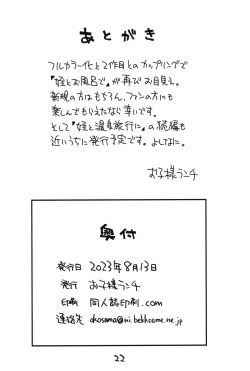 あとがき
フルカラー化と2作目とのカップリングで
『姪とお風呂で』が再びお目見え。
新規の方はもちろん、ファンの方にも
楽しんでもらえたなら幸いです。
そして『姪と温泉旅行に』の続編も
近いうちに発行予定です。よしなに。
お子様ランチ
奥付
発行日 2023年8月13日
発行 お子様ランチ
印刷 同人誌印刷.com
連絡先 okosama@ni.bekkoame.ne.jp
22